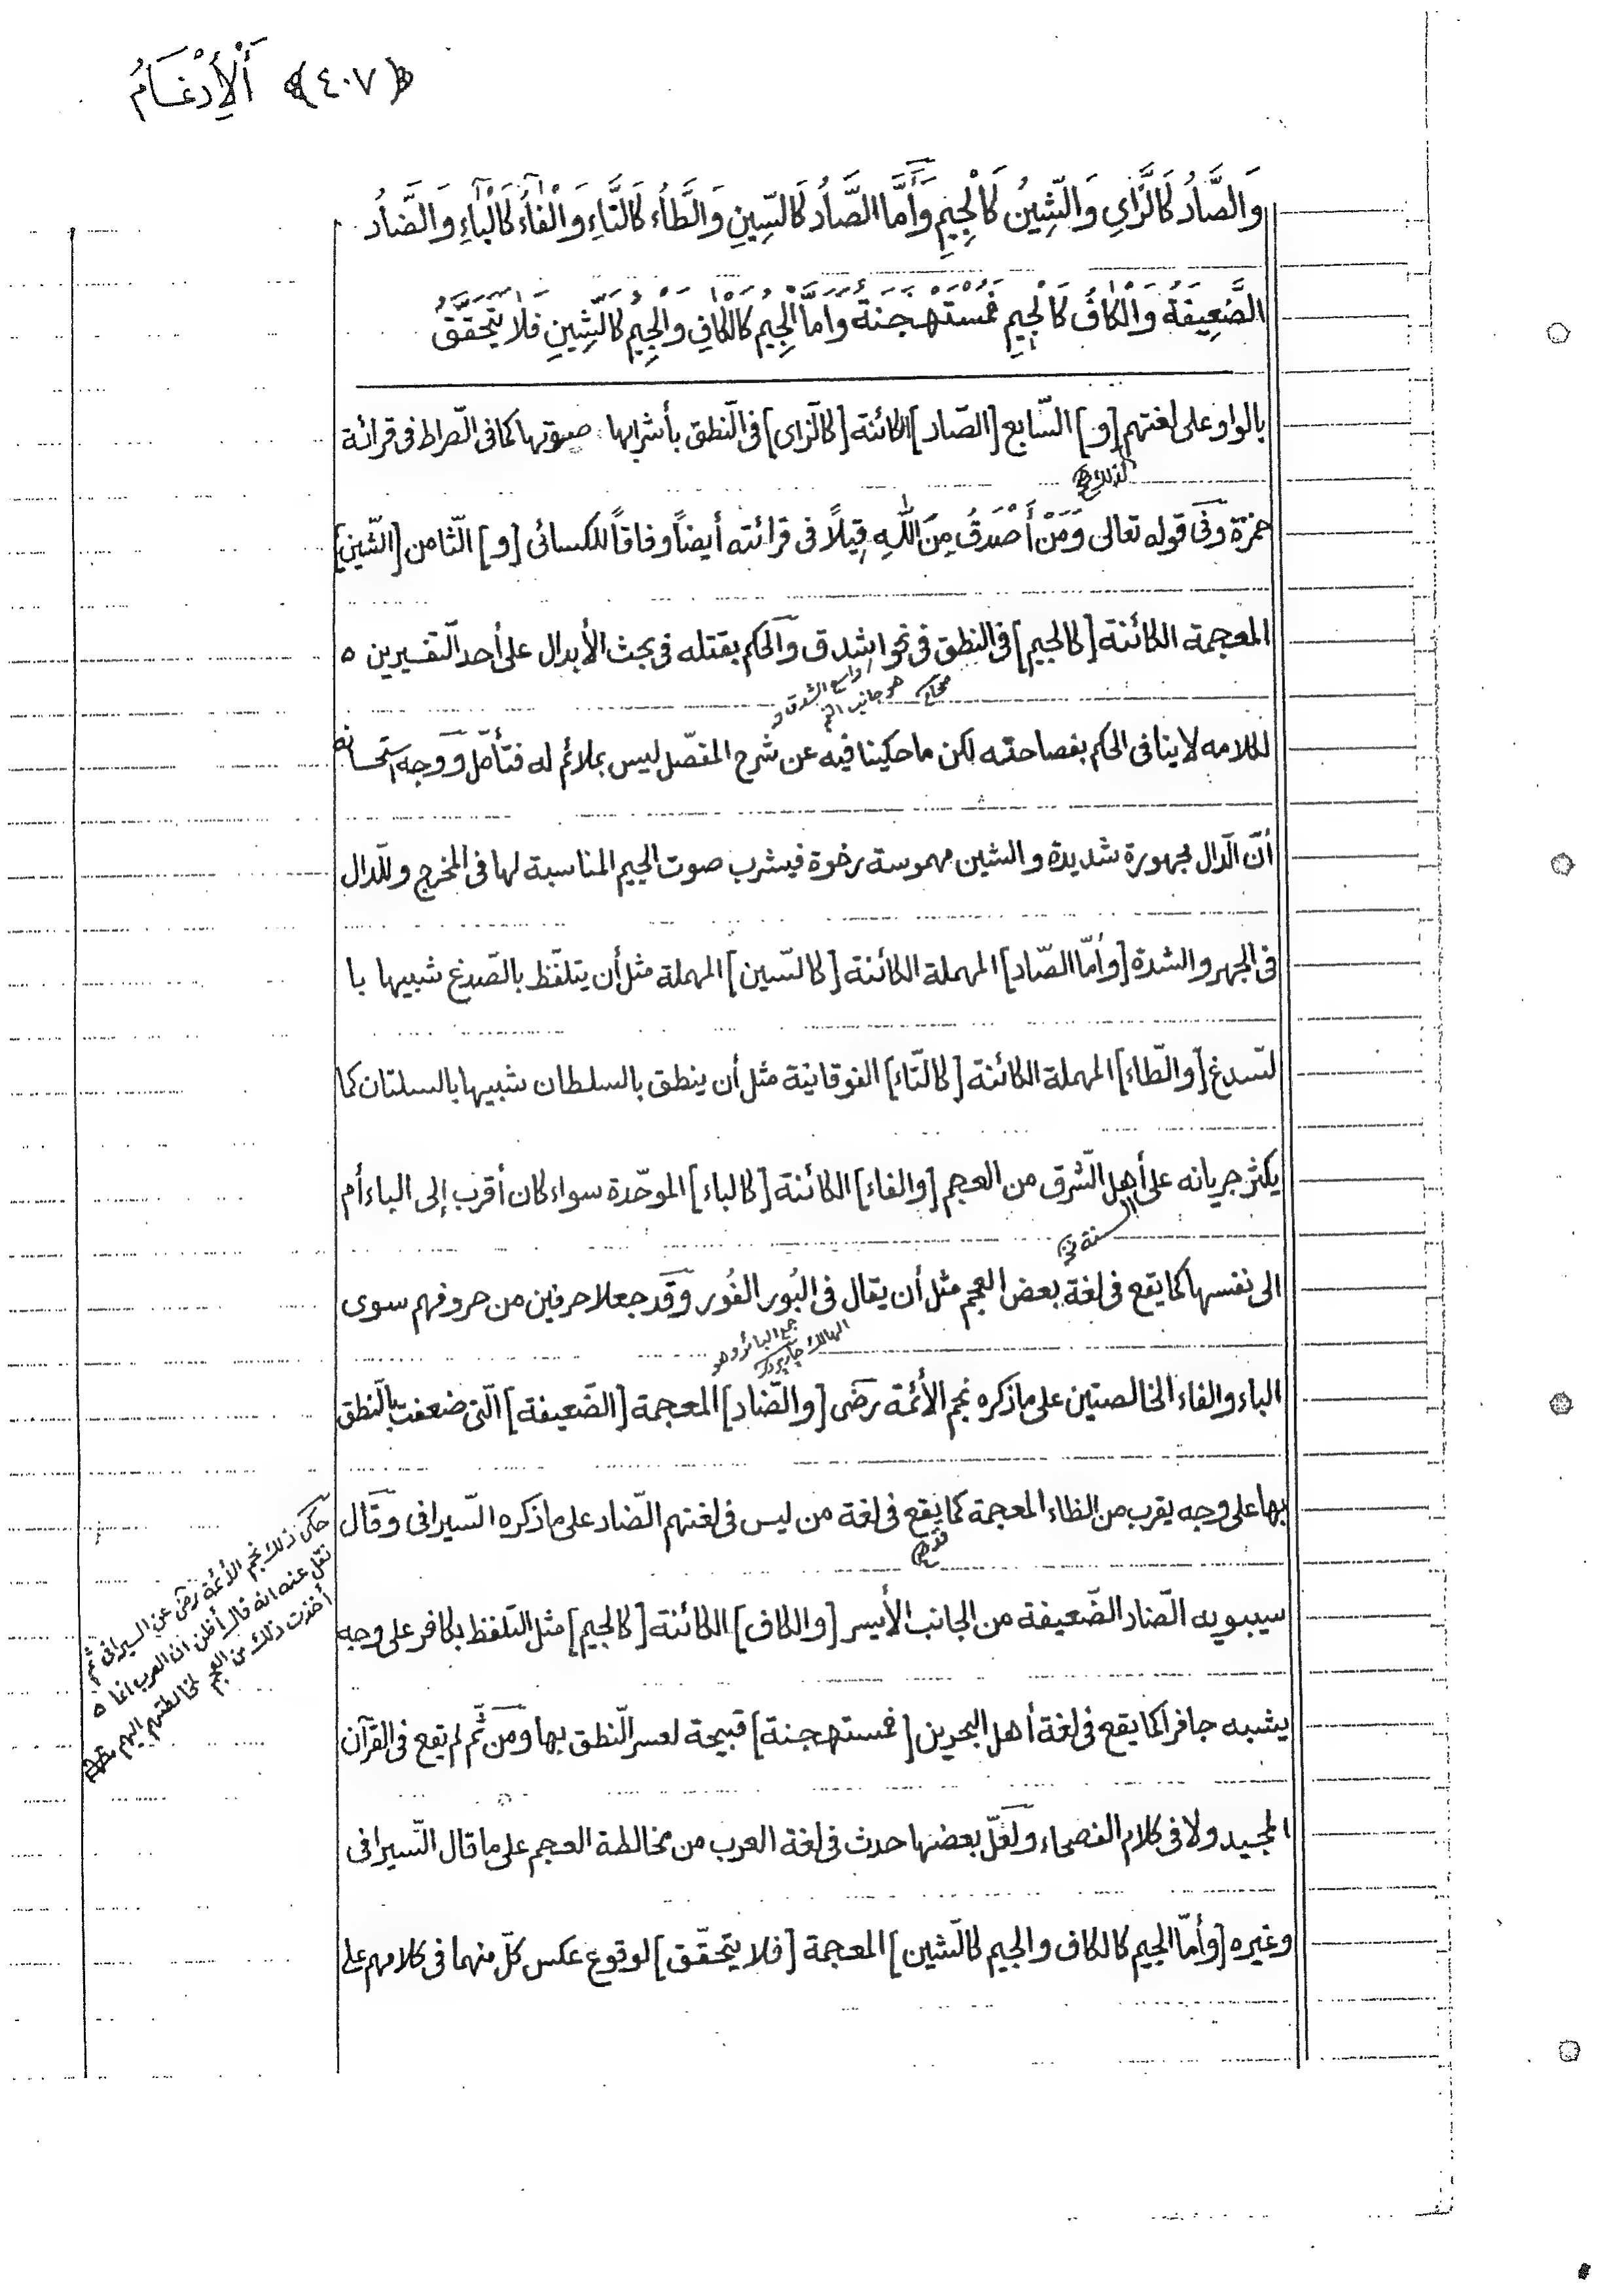 ﴿٤٠٧﴾ أَلْإِدْغَامُ
وَالصَّادُ كَالزَّايِ وَالشِّينُ كَالْجِيمِ وَأَمَّا الصَّادُ كَالسِّينِ وَالطَّاءُ كَالتَّاءِ وَالْفَاءُ كَالْبَاءِ وَالضَّادُ
الضَّعِيفَةُ وَالْكَافُ كَالْجِيمِ فَمُسْتَهْجَنَةٌ وَأَمَّا الْجِيمُ كَالْكَافِ وَالْجِيمُ كَالشِّينِ فَلَا يَتَحَقَّقُ
بالواو على لغتهم [و] السّابع [الصّاد] الكائنة [كالزاى] فى النّطق بأشرابها صوتها كما فى الصّراط فى قرائة
حمزة وفى قوله تعالى وَمَنْ أَصْدَقُ مِنَ اللّٰهِ قِيلًا فى قرائته أيضاً وفاقاً للكسائى [و] الثّامن [الشّين]
المعجمة الكائنة [كالجيم] فى النطق فى نحو اشدق والحكم بقتله فى بحث الأبدال على أحد التّفسيرين
محاك هو جانب الفم
واسع الشدق و
لكلامه لا ينافى الحكم بفصاحته لكن ما حكينا فيه عن شرح المفصّل ليس بملائم له فتأمّل ووجه استحسانه
أنّ الدّال مجهورة شديدة والشين مهموسة رخوة فيشرب صوت الجيم المناسبة لها فى المخرج وللدّال
فى الجهر والشدة [وأمّا الصّاد] المهملة الكائنة [كالسّين] المهملة مثل أن يتلفّظ بالصّدغ شبيها با
لسّدغ [والطّاء] المهملة الكائنة [كالتّاء] الفوقانية مثل أن ينطق بالسلطان شبيها بالسلتان كما
يكثر جريانه على أهل الشّرق من العجم [والفاء] الكائنة [كالباء] الموحّدة سواء كان أقرب إلى الباء أم
الى نفسها كما يقع فى لغة بعض العجم مثل أن يقال فى البُور الفُور وقد جعلا حرفين من حروفهم سوى
جمع البائر وهو
الهالك جاربردى
الباء والفاء الخالصتين على ما ذكره نجم الأئمة رضى [والضّاد] المعجمة [الضّعيفة] الّتى ضعفت بالنّطق
بها على وجه يقرب من الظاء المعجمة كما يقع فى لغة من ليس فى لغتهم الضّاد على ما ذكره السّيرافى وقال
سيبويه الضّاد الضّعيفة من الجانب الأيسر [والكاف] الكائنة [كالجيم] مثل التلفظ بكافر على وجه
يشبه جافرا كما يقع فى لغة أهل البحرين [فمستهجنة] قبيحة لعسر النّطق بها ومن ثَمّ لم يقع فى القرآن
المجيد ولا فى كلام الفصحاء ولعلّ بعضها حدث فى لغة العرب من مخالطة العجم على ما قال السّيرافى
وغيره [وأمّا الجيم كالكاف والجيم كالشّين] المعجمة [فلا يتحقّق] لوقوع عكس كلّ منهما فى كلامهم على
حكى ذلك نجم الأئمة رضى عن السيرافى ثم
نقل عنه انه قال أظن ان العرب انما
أخذت ذلك من العجم لمخالطتهم اليهم